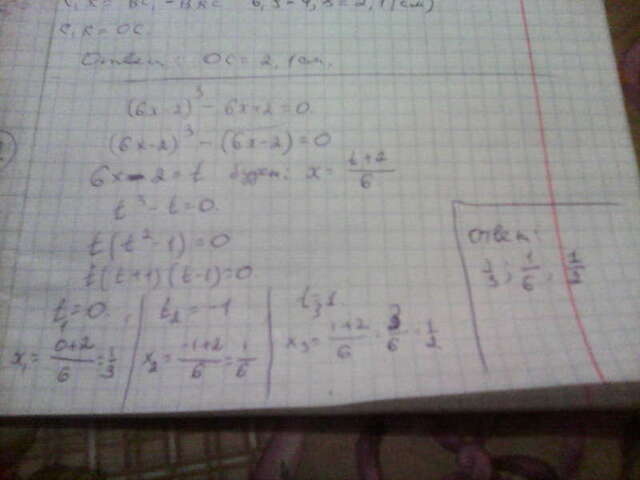 C₁K = BC₁ - BK = 6,3 - 4,2 = 2,1 (см)
C₁K = OC.
Ответ: OC = 2,1 см.
(6x-2)³ - 6x+2=0.
(6x-2)³ - (6x-2)=0
6x-2=t будет: x = (t+2)/6
t³-t=0.
t(t²-1)=0
t(t+1)(t-1)=0
t₁=0. t₂=-1 t₃=1.
x₁ = (0+2)/6 = 1/3 x₂ = (-1+2)/6 = 1/6 x₃ = (1+2)/6 = 3/6 = 1/2
Ответ:
1/3; 1/6; 1/2